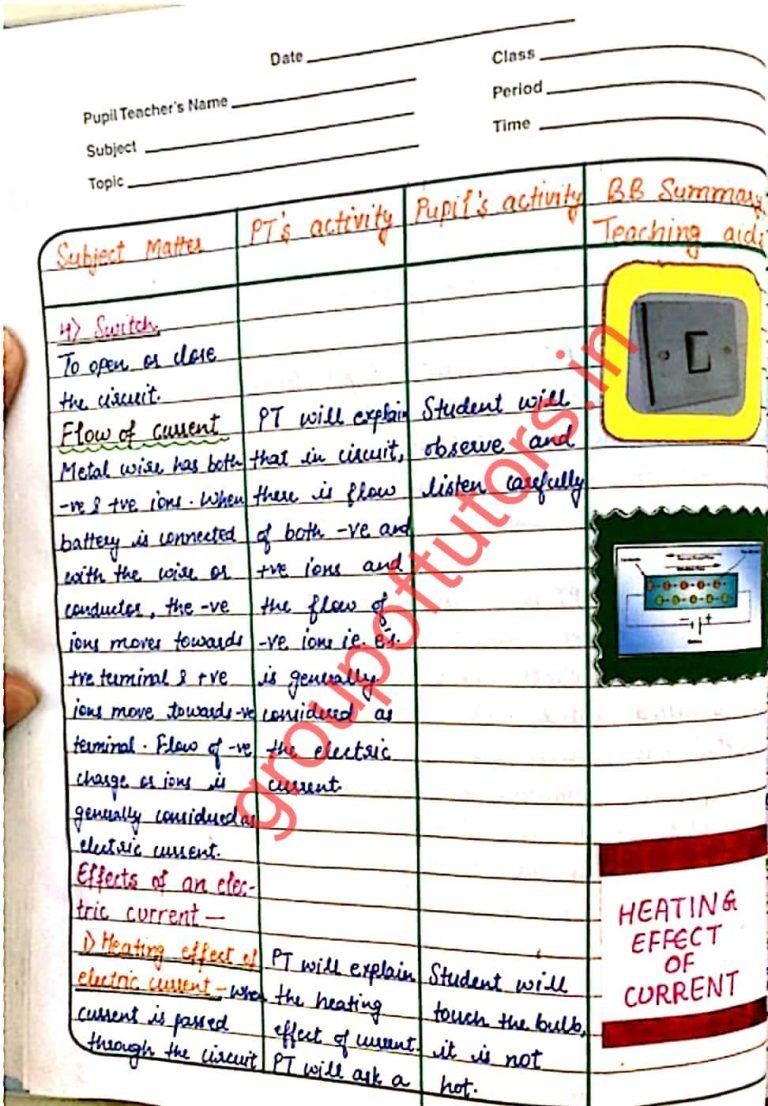 Date
Class
Pupil Teacher's Name
Period
Subject
Time
Topic
Subject Matter
PT's activity
Pupil's activity
BB Summary
Teaching aids
4) Switch
To open or close
the circuit.
Flow of current
Metal wire has both
-ve & +ve ions. When
battery is connected
with the wire or
conductor, the -ve
ions moves towards
+ve terminal & +ve
ions move towards -ve
terminal. Flow of -ve
charge or ions is
generally considered as
electric current.
Effects of an elec-
tric current —
1) Heating effect of
electric current - when
current is passed
through the circuit
PT will explain
that in circuit,
there is flow
of both -ve and
+ve ions and
the flow of
-ve ions i.e. e's
is generally
considered as
the electric
current.
PT will explain
the heating
effect of current.
PT will ask a
Student will
observe and
listen carefully
Student will
touch the bulb,
it is not
hot.
HEATING
EFFECT
OF
CURRENT
groupoftutors.in